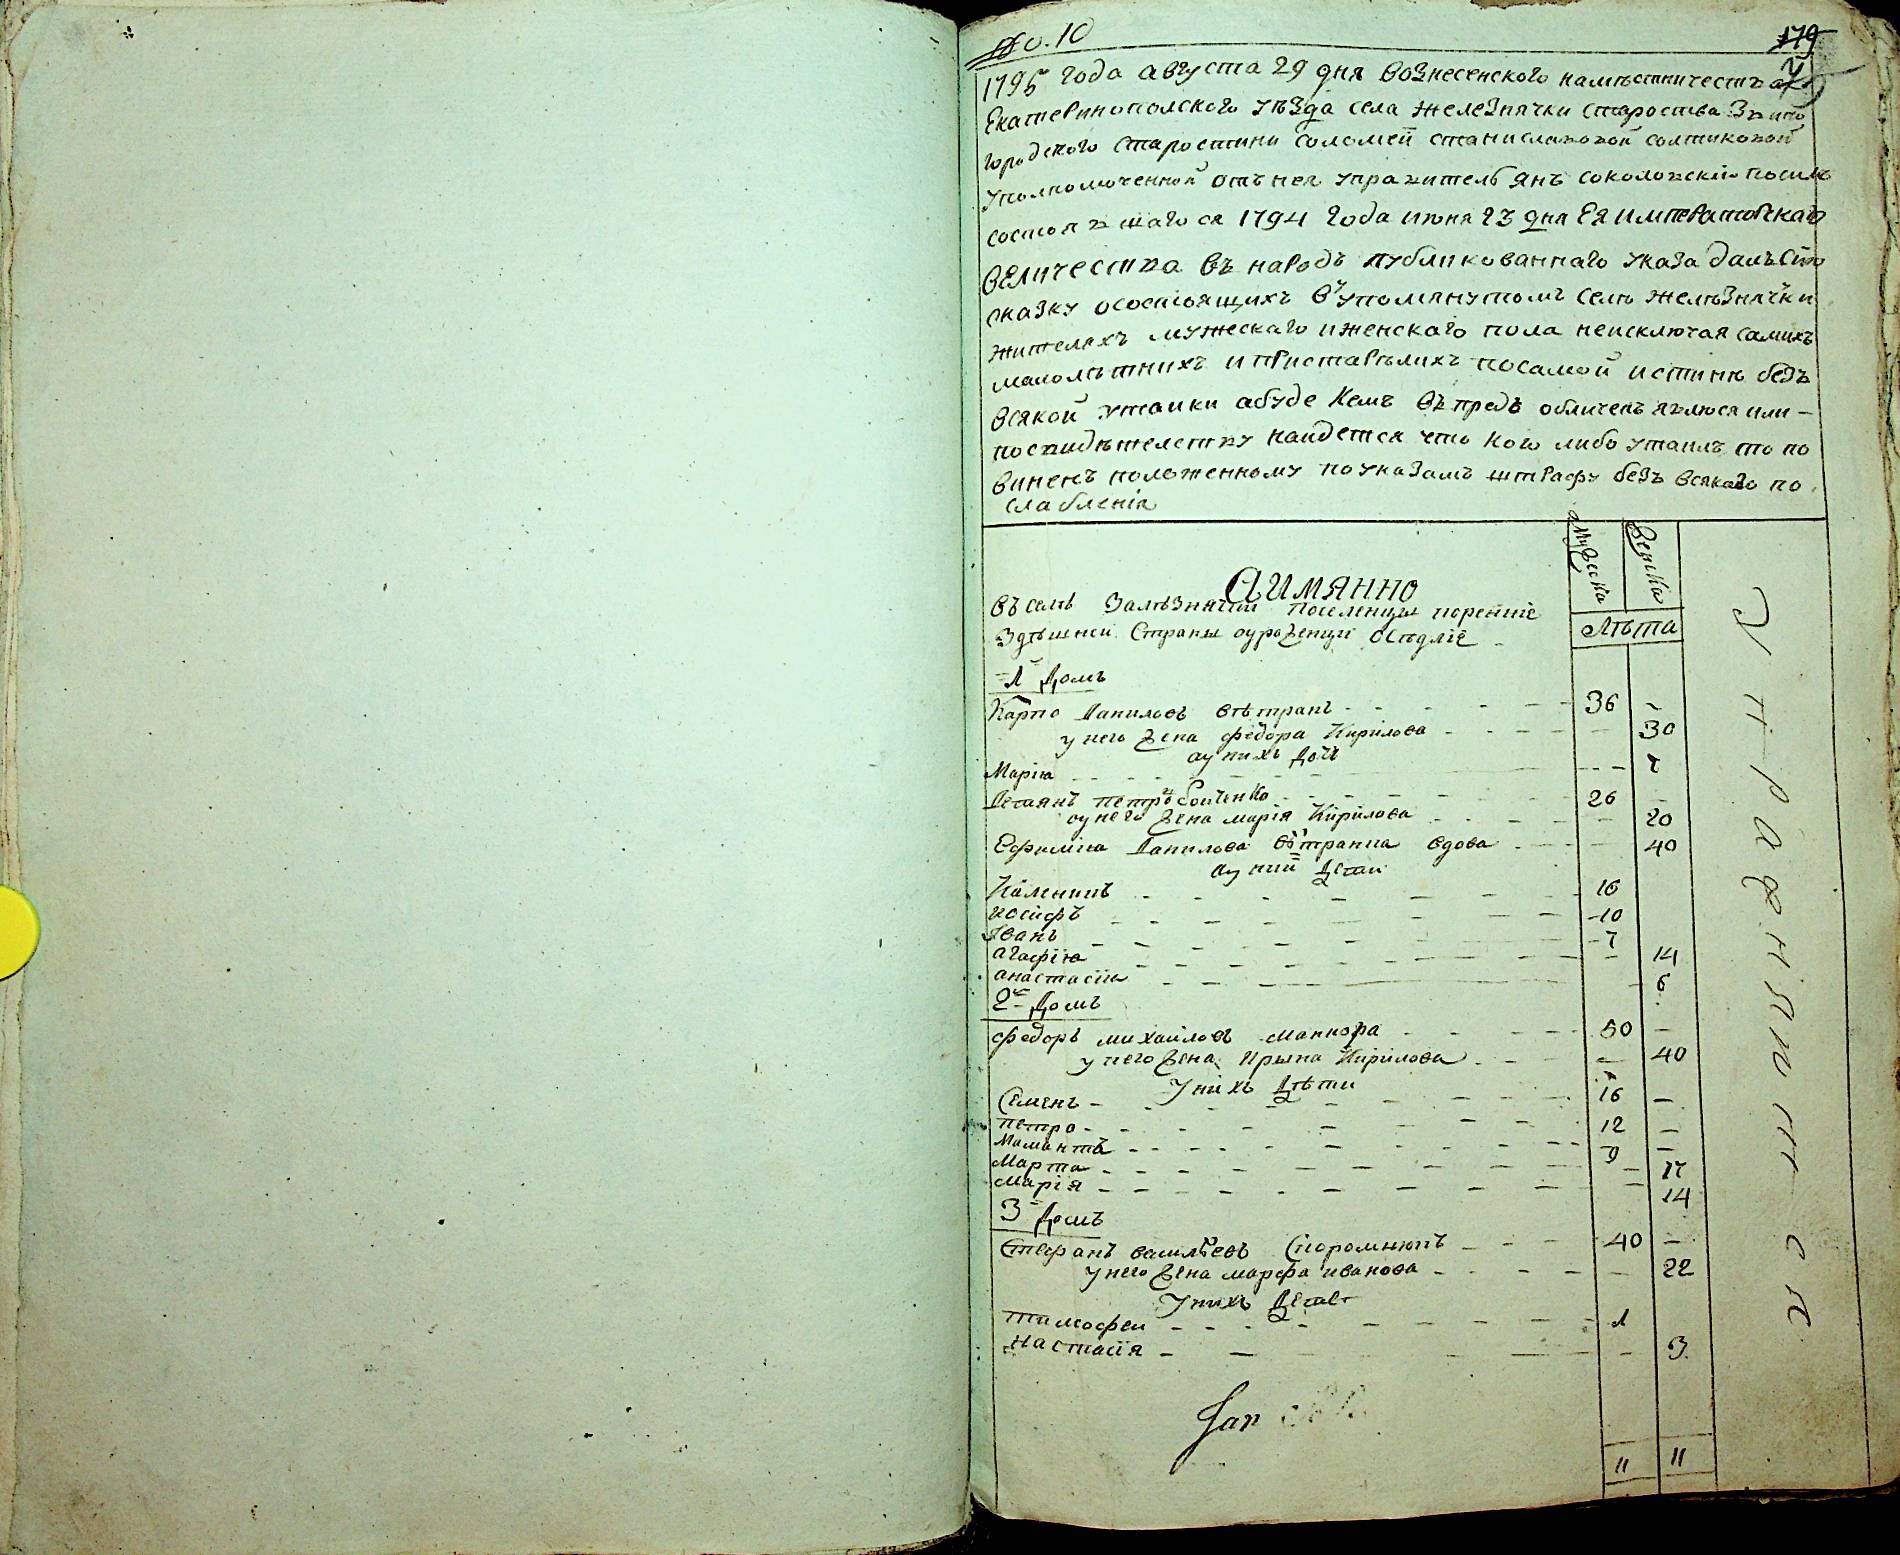 No. 10
179
1795 года августа 29 дня вознесенского намѣстничества
Екатеринополского уѣзда села железнячки староства Звино
городского старостини соломей станиславовой солтиковой
уполномоченной отъ нея управитель Янъ соколовскій посилѣ
состоявшагося 1794 года июня 23 дня Ея императорскаго
величества въ народъ публикованнаго указа далъ сію
сказку осостоящихъ вупомянутомъ селѣ желѣзнячки
жителяхъ мужескаго иженскаго пола неисключая самихъ
малолѣтнихъ ипристарѣлихъ посамой истиннѣ безъ
всякой утаики абуде кемъ въпредь обличенъ явлюся или
посвидѣтелству наидется что кого либо утаилъ то по
виненъ положенному поуказамъ штрафу безъ всякаго по
слабленія
мужеска
женска
Аимянно
въселѣ Залѣзнячки поселенцы корение
здѣшней Страны оуроженци осѣдліе
лѣта
1 Домъ
Карпо Даниловъ вѣтранъ 36 -
у него жена федора Кирилова - 30
оу нихъ дочь
Марія - 7
Демянъ петровъ 26 -
оу него жена марія Кирилова - 20
Ефимія Данилова вѣтранка вдова - 40
оу ний дети
Каленикъ 16
иосифъ 10
Иванъ 7
агафія - 14
анастасія - 6
2 Домъ
федоръ михаиловъ 50 -
у него жена Ирына Кирилова - 40
у нихъ дѣти
Семенъ 16 -
петро 12 -
Маманта 9 -
Марта - 17
марія - 14
3 Домъ
Стефанъ васильевъ 40 -
у него жена марфа иванова - 22
у нихъ дети
тимофеи 1
настасія - 3
Jan
11 11